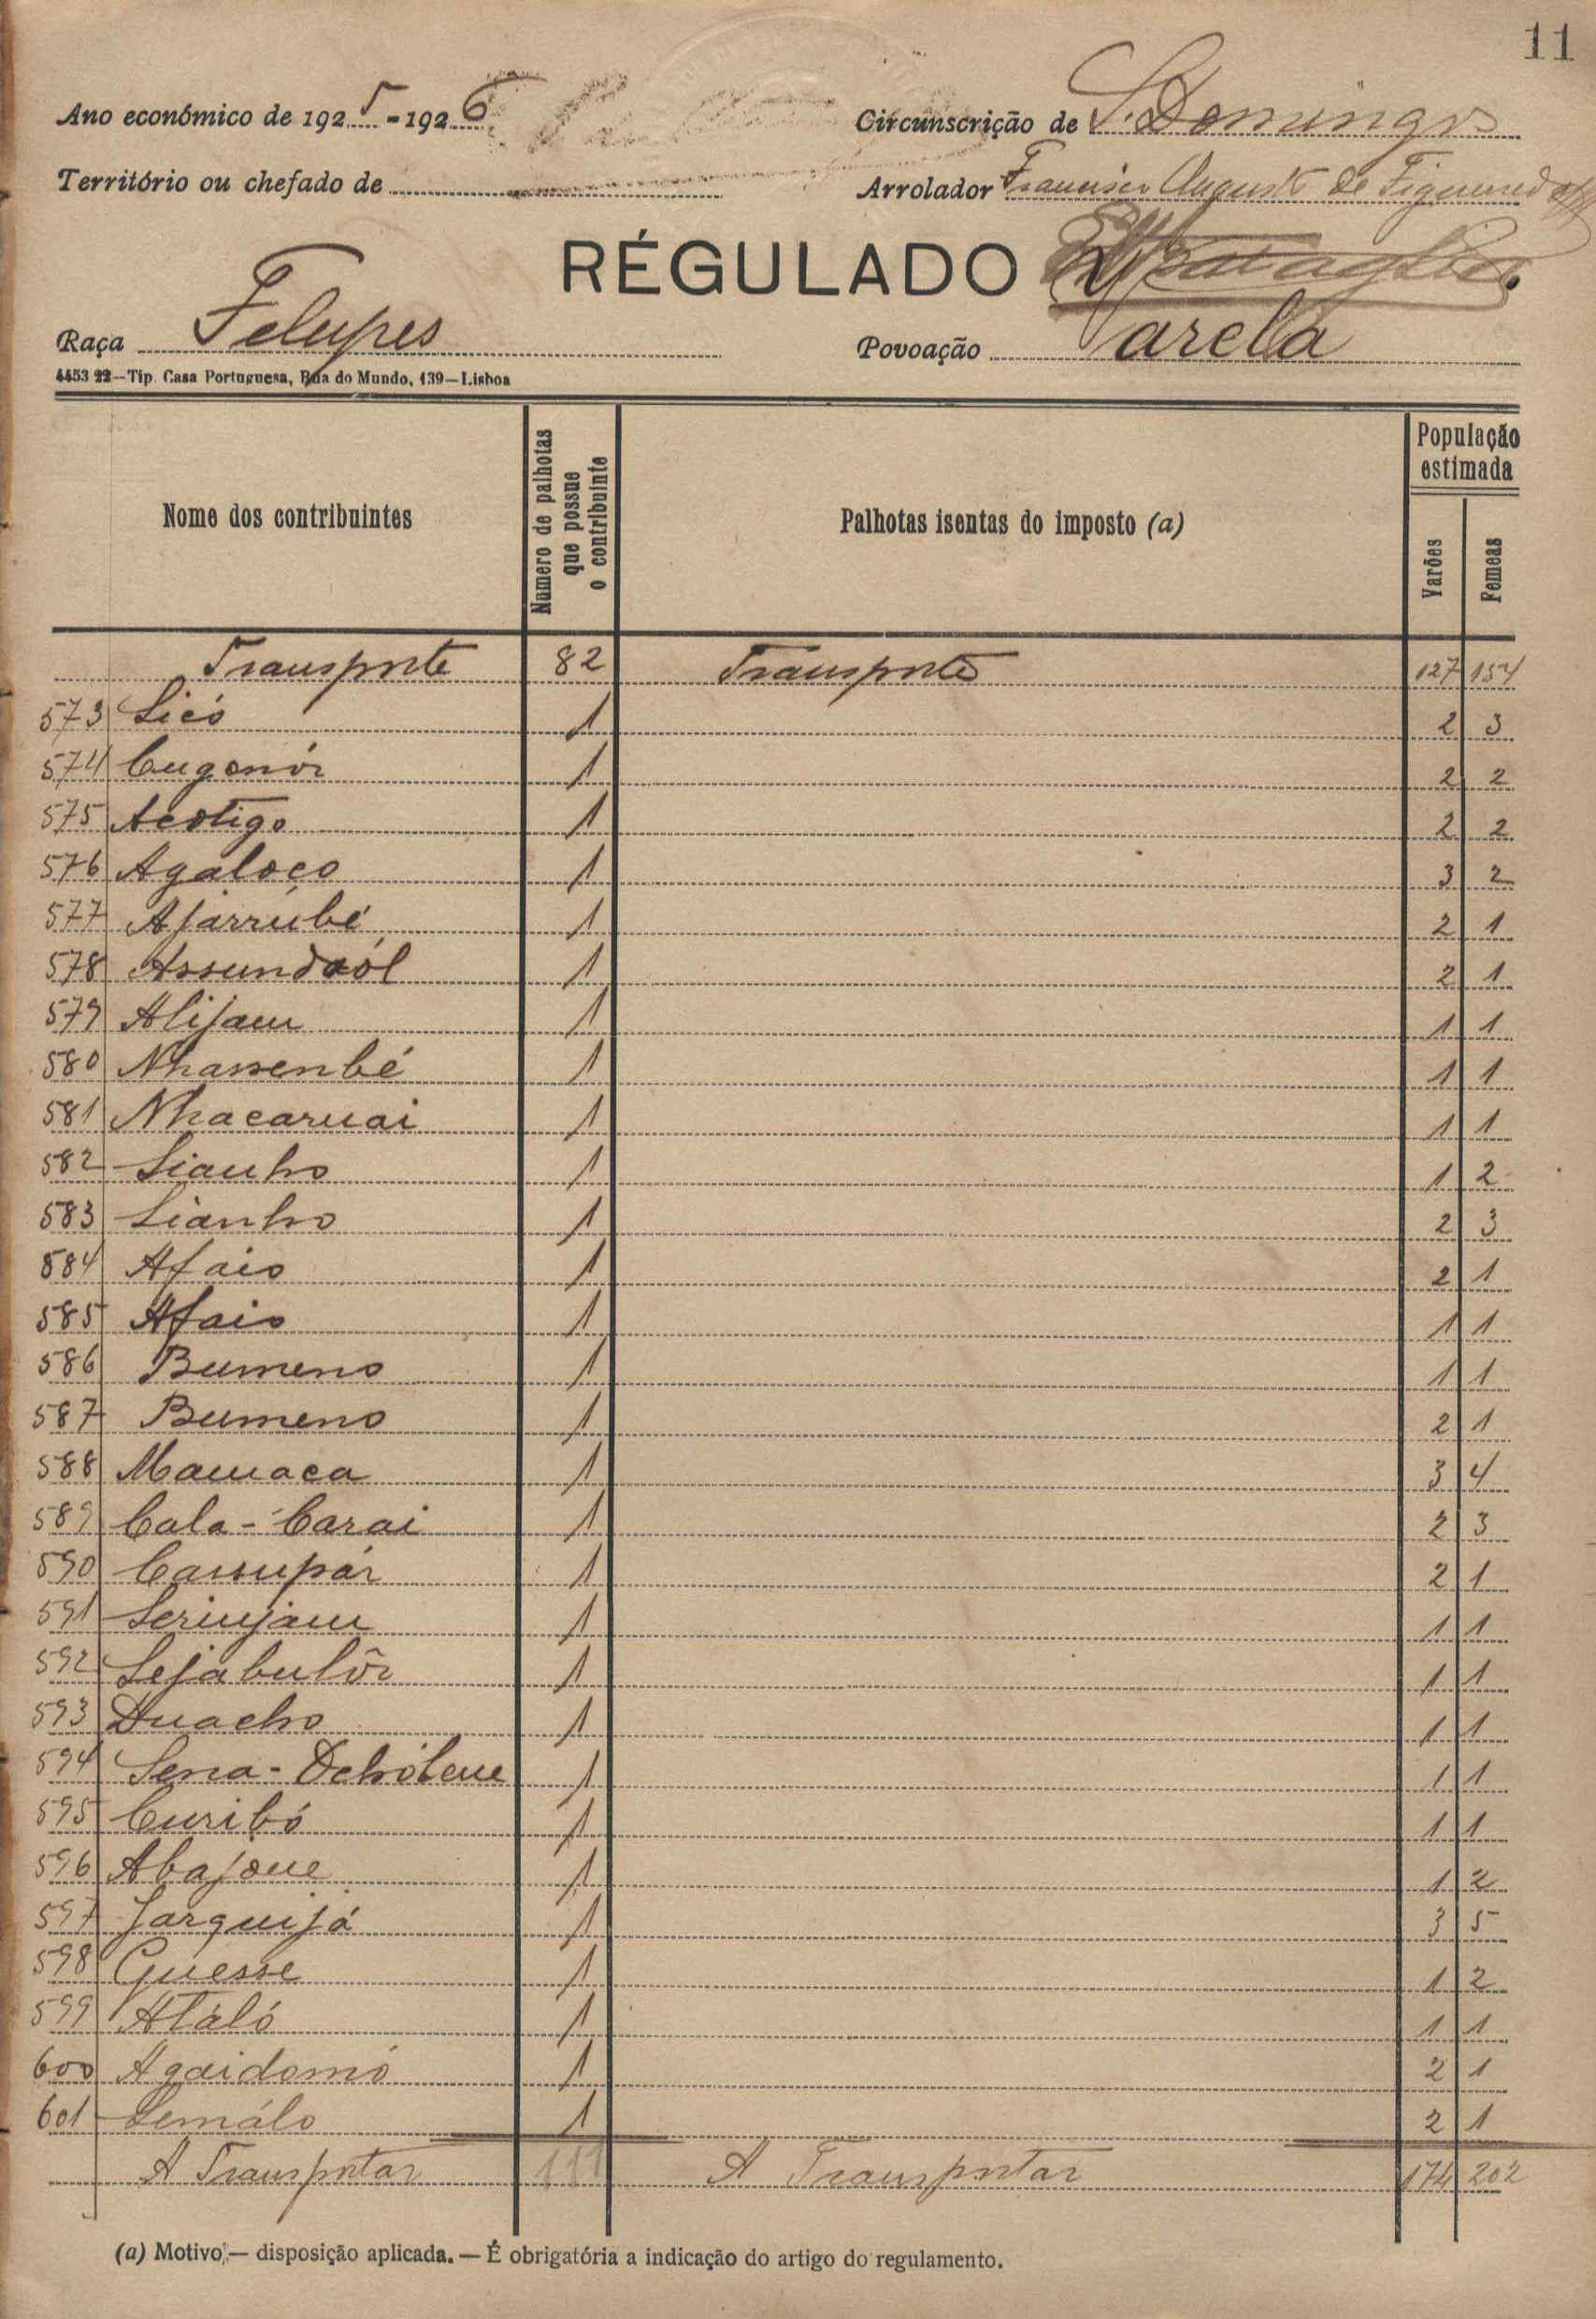 11
Ano económico de 1925-1926 Circunscrição de S. Domingos
Território ou chefado de Arrolador Francisco Augusto de Figueiredo
RÉGULADO
Raça Felupes Povoação Varela
4453 22—Tip. Casa Portuguesa, Rua do Mundo, 139—Lisboa
Nome dos contribuintes Numero de palhotas que possue o contribuinte Palhotas isentas do imposto (a) População estimada Varões Femeas
Transporte 82 Transporte 127 154
573 Sicó 1 2 3
574 Cugonór 1 2 2
575 Acotigo 1 2 2
576 Agaloço 1 3 2
577 Ajarrubé 1 2 1
578 Assundoól 1 2 1
579 Alijam 1 1 1
580 Nhassenbé 1 1 1
581 Nhacaruai 1 1 1
582 Sianho 1 1 2
583 Sianho 1 2 3
584 Afais 1 2 1
585 Afais 1 1 1
586 Bumeno 1 1 1
587 Bumeno 1 2 1
588 Mamaca 1 3 4
589 Cala-Carai 1 2 3
590 Cassupár 1 2 1
591 Serinjam 1 1 1
592 Sejabulôr 1 1 1
593 Duacho 1 1 1
594 Sena- 1 1 1
595 Curibó 1 1 1
596 Abajoue 1 1 2
597 Jarquijá 1 3 5
598 Guesse 1 1 2
599 Atáló 1 1 1
600 Agaidomó 1 2 1
601 Semálo 1 2 1
A Transportar 111 A Transportar 174 202
(a) Motivo — disposição aplicada. — É obrigatória a indicação do artigo do regulamento.